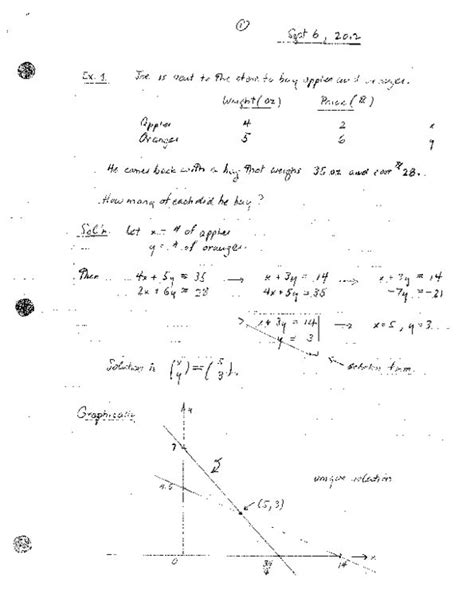 ①
Sept 6, 2012
Ex. 1. Joe is sent to the store to buy apples and oranges.
Weight (oz) Price (¢)
Apples 4 2 x
Oranges 5 6 y
He comes back with a bag that weighs 35 oz and cost 28.
How many of each did he buy?
Sol'n. Let x = # of apples
y = # of oranges.
Then 4x + 5y = 35 → x + 3y = 14 → x + 3y = 14
2x + 6y = 28 4x + 5y = 35 -7y = -21
x + 3y = 14 → x = 5, y = 3
y = 3
Solution is (x y) = (5 3).
Graphically
y
7
unique solution
(5,3)
x
0 14